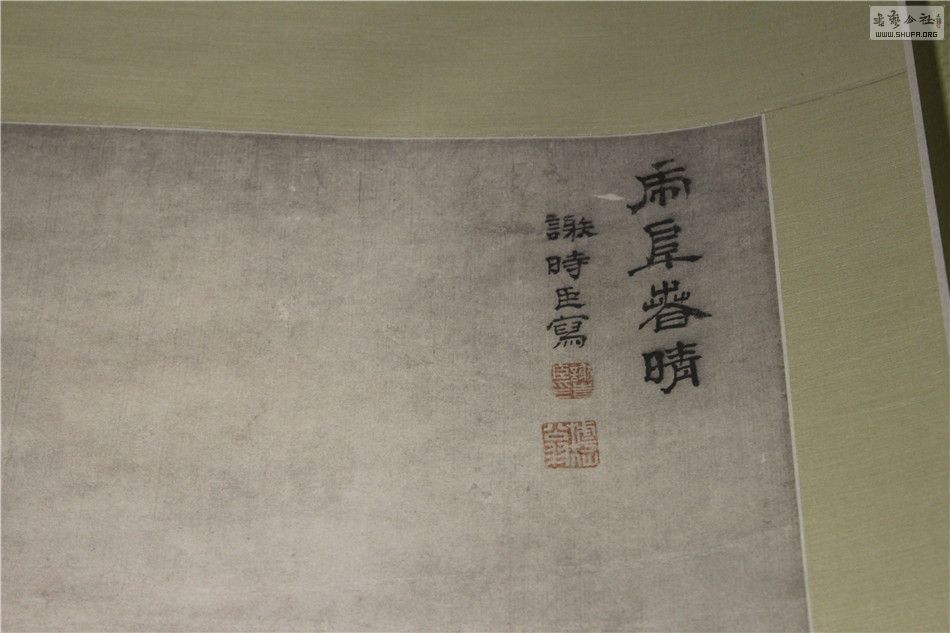 虎阜春晴
謝時臣寫
書藝公社
WWW.SHUFA.ORG